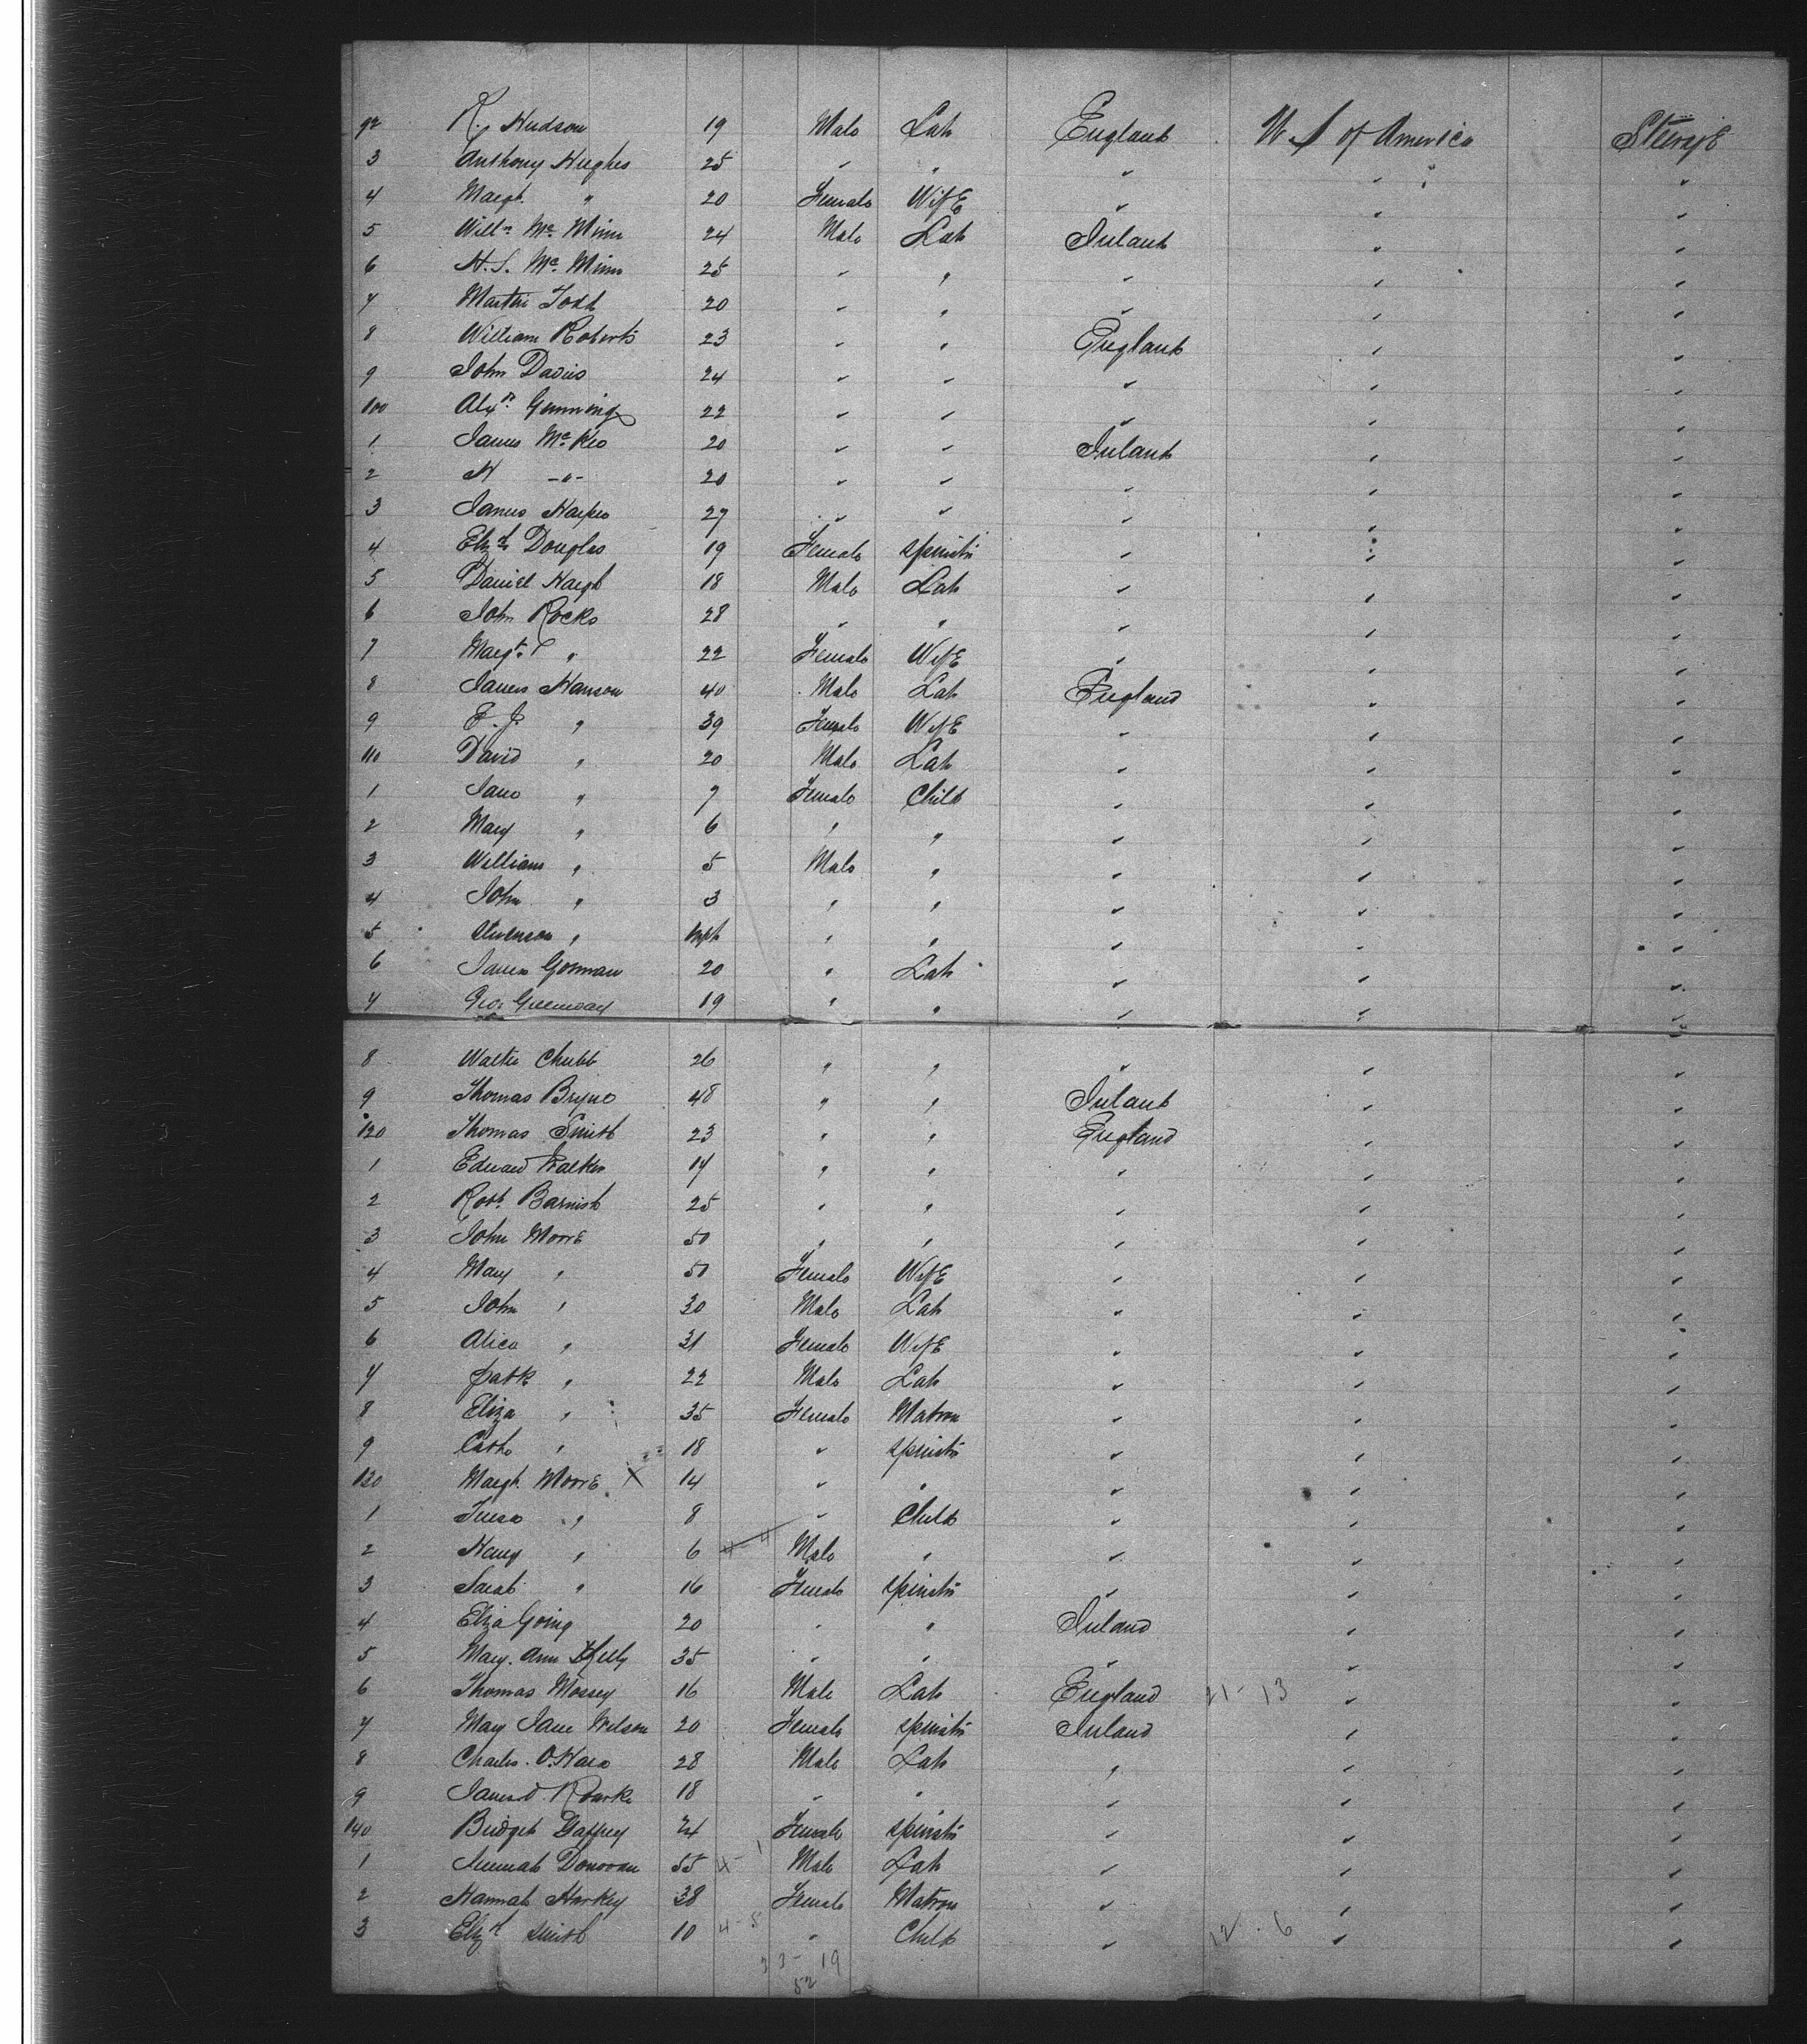 92 R. Hudson 19 Male Lab England U S of America Steerage
3 Anthony Hughes 25 " " " " "
4 Margt. " 20 Female Wife " " "
5 Willm. Mc. Minn 24 Male Lab Ireland " "
6 H. S. Mc. Minn 25 " " " " "
7 Martin Todd 20 " " " " "
8 William Roberts 23 " " England " "
9 John Davies 24 " " " " "
100 Alexr. 22 " " " " "
1 James Mc. Kee 20 " " Ireland " "
2 H -"- 20 " " " " "
3 James 27 " " " " "
4 Elizth Douglas 19 Female Spinstr " " "
5 Daniel 18 Male Lab " " "
6 John Rocks 28 " " " " "
7 Margt. " 22 Female Wife " " "
8 James Hanson 40 Male Lab England " "
9 E. J. " 39 Female Wife " " "
110 David " 20 Male Lab " " "
1 Jane " 7 Female Child " " "
2 Mary " 6 " " " " "
3 William " 5 Male " " " "
4 John " 3 " " " " "
5 Stevenson " Inft " " " " "
6 James Gorman 20 " Lab " " "
7 Geo. Greenway 19 " " " " "
8 Walter Chubb 26 " " " " "
9 Thomas Bryne 48 " " Ireland " "
120 Thomas Smith 23 " " England " "
1 Edward Walker 17 " " " " "
2 Robt. Barnish 25 " " " " "
3 John Moore 50 " " " " "
4 Mary " 50 Female Wife " " "
5 John " 30 Male Lab " " "
6 Alice " 31 Female Wife " " "
7 Patk " 22 Male Lab " " "
8 Eliza " 35 Female Matron " " "
9 Cathe " 18 " Spinstr " " "
130 Margt. Moore X 14 " " " " "
1 Teresa " 8 " Child " " "
2 Henry " 6 4 4 Male " " " "
3 Sarah " 16 Female Spinstr " " "
4 Eliza Going 20 " " Ireland " "
5 Mary Ann Kelly 35 " " " " "
6 Thomas Mossey 16 Male Lab England 21 - 13 " "
7 Mary Jane Wilson 20 Female Spinstr Ireland " "
8 Charles O.Hara 28 Male Lab " " "
9 James O. Rourke 18 " " " " "
140 Bridget Gaffney 24 Female Spinstr " " "
1 Jeremiah Donovan 55 4 - 1 Male Lab " " "
2 Hannah 38 Female Matron " " "
3 Elizth Smith 10 4 - 5 " Child " 12 - 6 " "
33 - 19
52